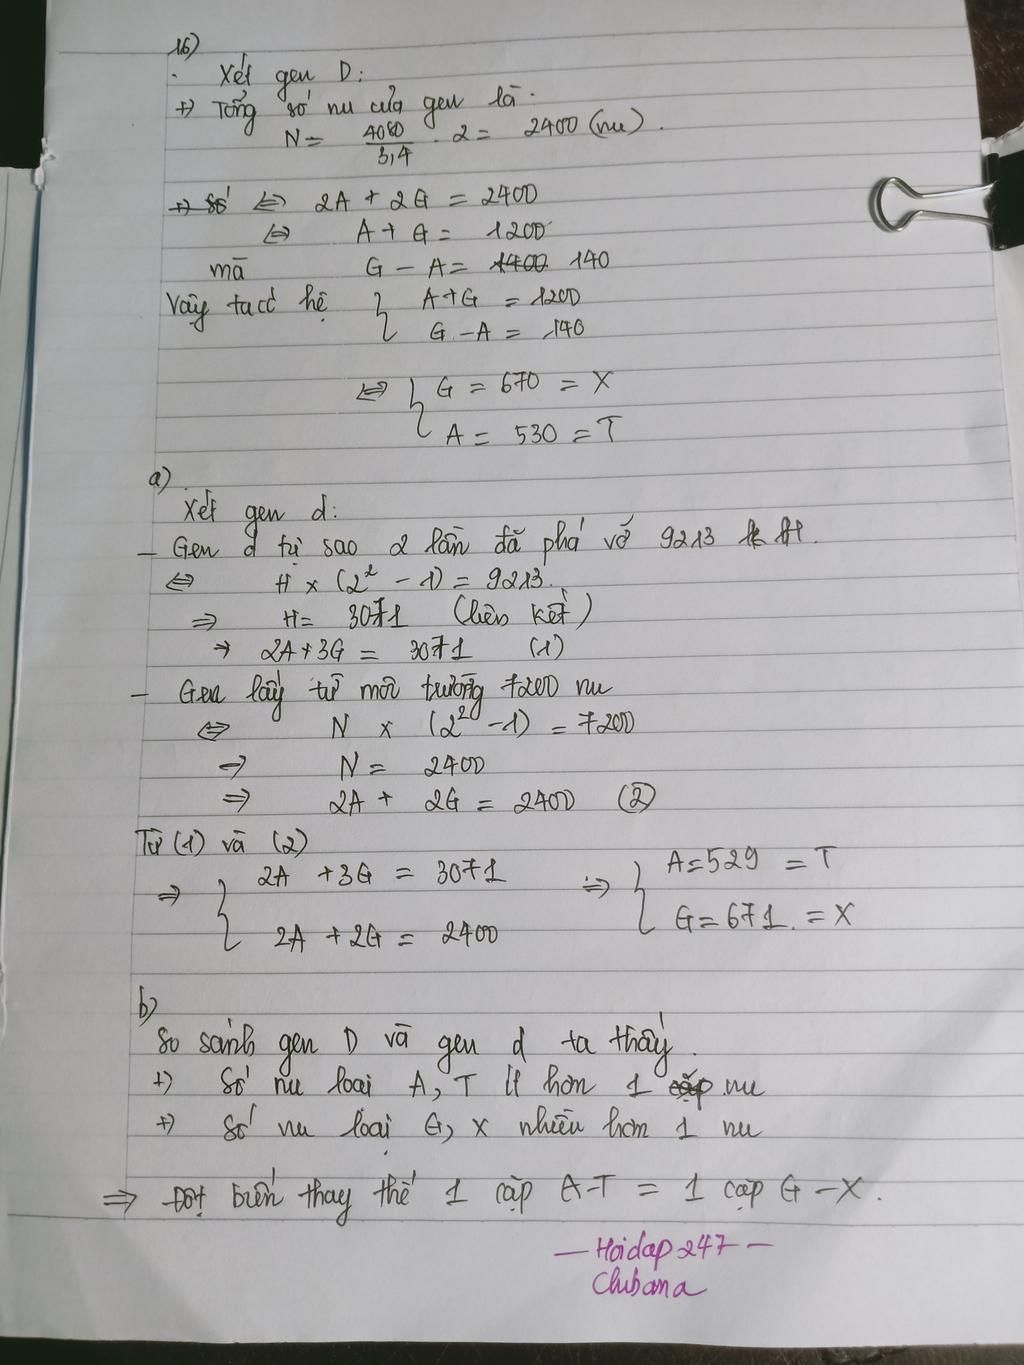 16)
. Xét gen D:
+) Tổng số nu của gen là:
N = 4080/3,4 . 2 = 2400 (nu).
+) số ⇔ 2A + 2G = 2400
⇔ A + G = 1200
mà G - A = 1400 140
Vậy ta có hệ { A+G = 1200
G - A = 140
⇔ { G = 670 = X
A = 530 = T
a)
Xét gen d:
- Gen d tự sao 2 lần đã phá vỡ 9213 lk H.
⇔ H x (2² - 1) = 9213.
⇒ H = 3071 (liên kết)
→ 2A+3G = 3071 (1)
- Gen lấy từ môi trường 7200 nu
⇔ N x (2² - 1) = 7200
⇒ N = 2400
⇒ 2A + 2G = 2400 (2)
Từ (1) và (2)
⇒ { 2A + 3G = 3071 ⇒ { A = 529 = T
2A + 2G = 2400 G = 671. = X
b)
So sánh gen D và gen d ta thấy.
+) Số nu loại A, T ít hơn 1 cặp nu
+) Số nu loại G, X nhiều hơn 1 nu
⇒ Đột biến thay thế 1 cặp A-T = 1 cặp G-X.
— Hoidap247 —
Chibana